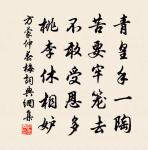 青皇手一陶
苦要牢籠去
不敢受恩多
桃李休相妒
方蒙仲 梅詞典網集